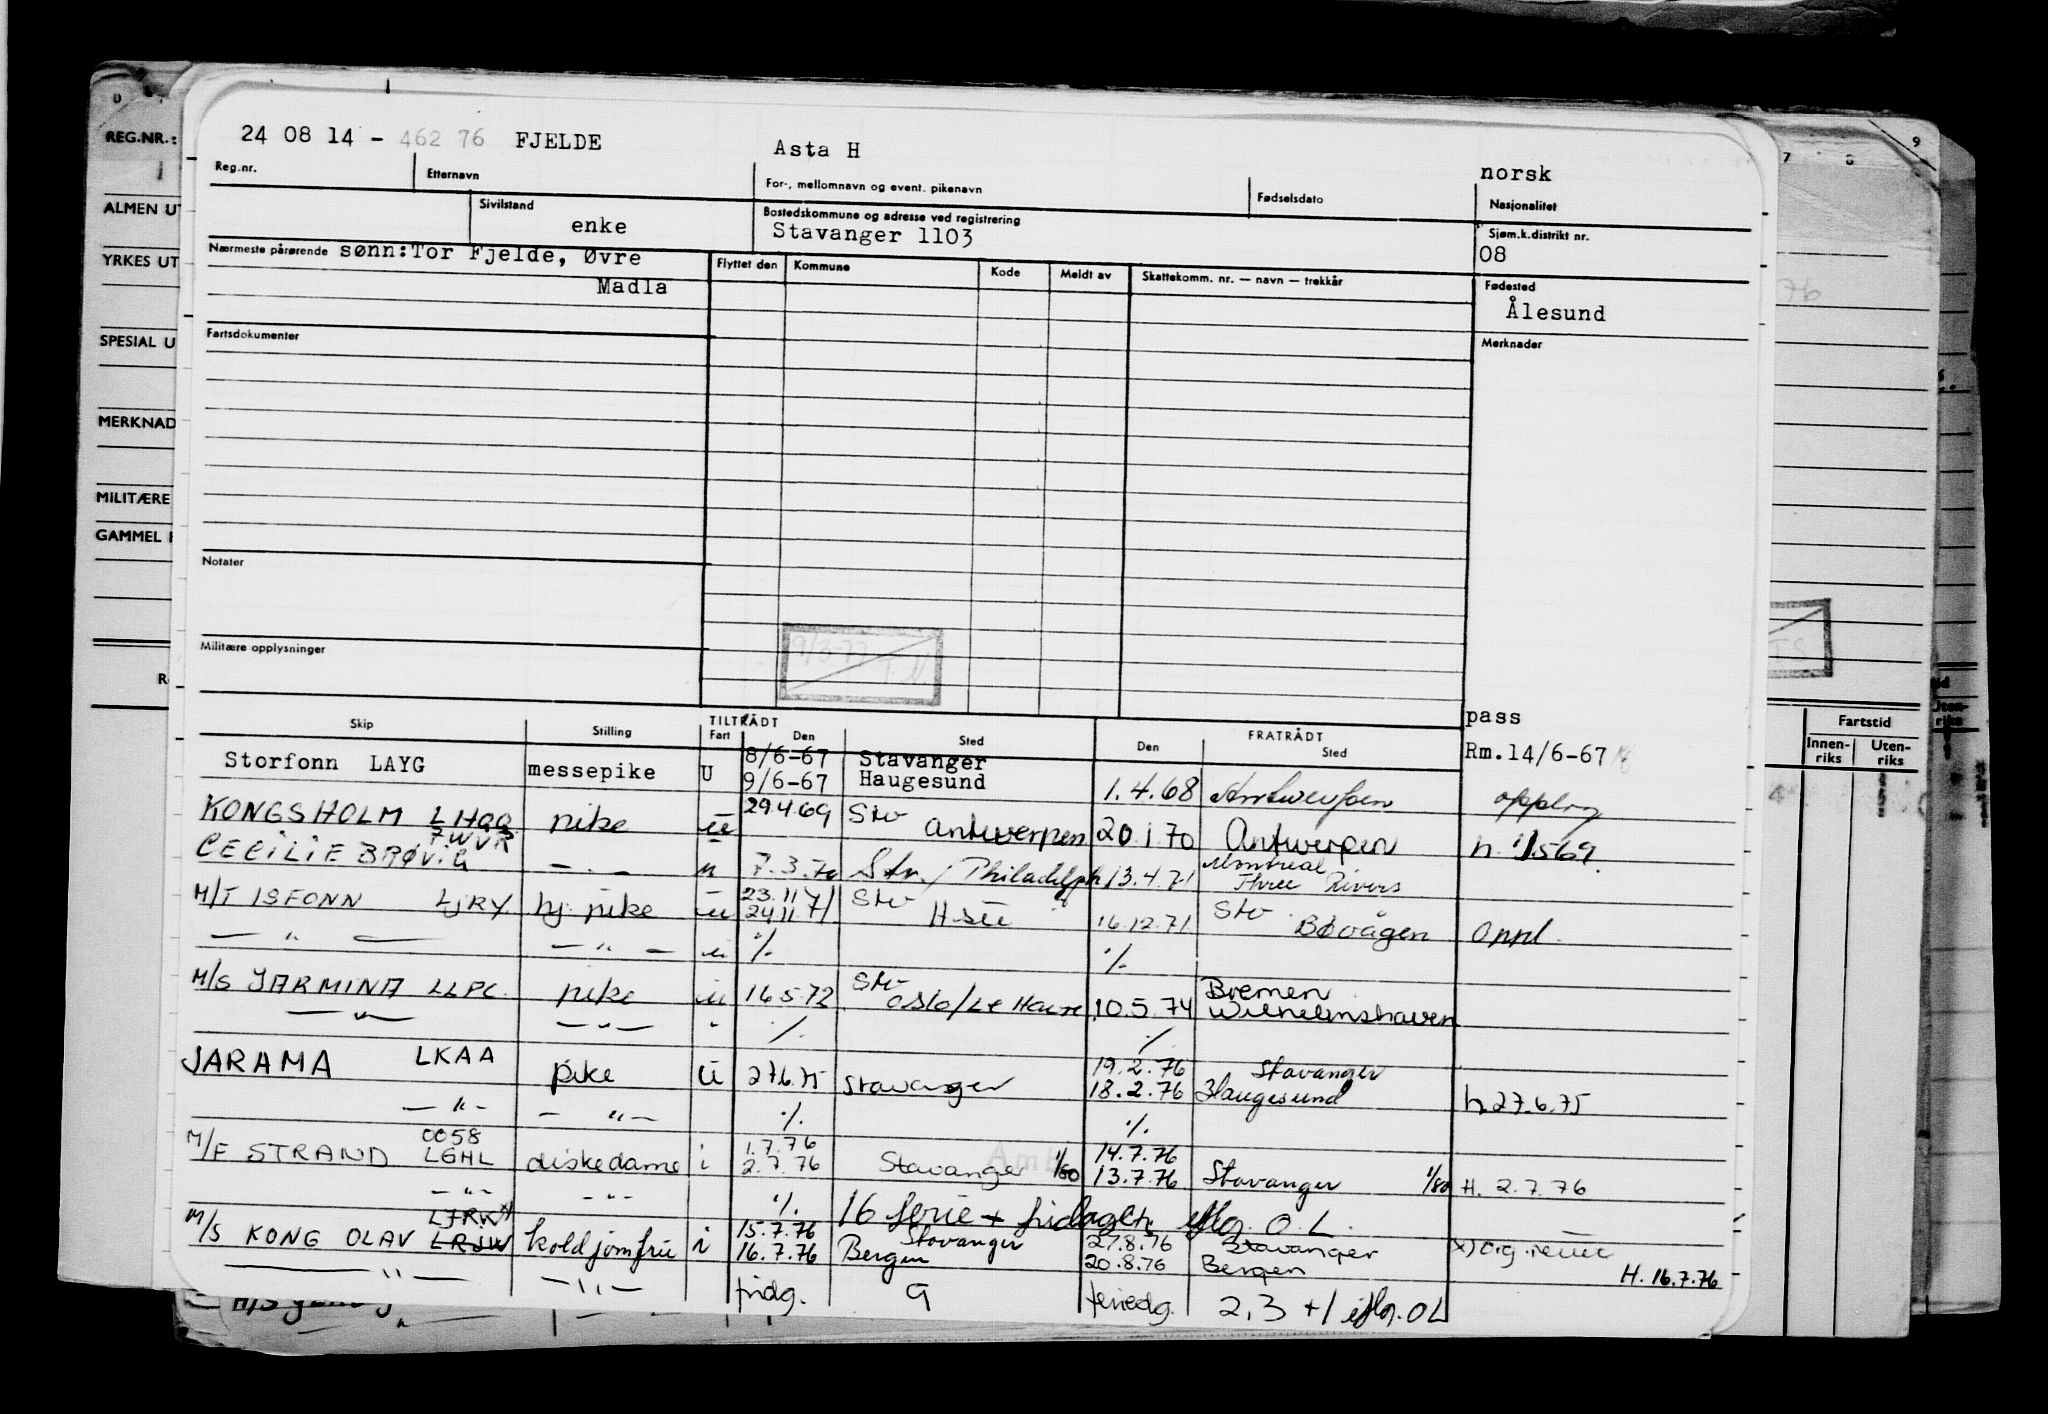 24 08 14 - 462 76 FJELDE Asta H norsk
Reg.nr. Etternavn For-, mellomnavn og event. pikenavn Fødselsdato Nasjonalitet
Sivilstand enke Bostedskommune og adresse ved registrering Stavanger 1103 Sjøm.k.distrikt nr. 08
Nærmeste pårørende sønn:Tor Fjelde, Øvre
Madla
Flyttet den Kommune Kode Meldt av Skattekomm. nr. — navn — trekkår
Fødested
Ålesund
Fartsdokumenter
Merknader
Notater
9/3-77 T.N
Militære opplysninger
pass
Skip Stilling TILTRÅDT Fart Den Sted FRATRÅDT Den Sted
Storfonn LAYG messepike U 8/6-67 Stavanger Rm.14/6-67
9/6-67 Haugesund 1.4.68 Antwerpen
KONGSHOLM pike u 29.4.69 Stv Antwerpen 20.1.70 Antwerpen
CECILIE BRØVIG — . — u 7.3.70 Stv. / Philadelph 13.4.71 Montreal
Three Rivers
M/T ISFONN LJRY hj. pike u 23.11 71 Stv
24.11 H.su 16.12.71 Stv. Bøvågen Oppl.
— " — — " — u %. %.
M/S JARMINA LLPC. pike u 16.5.72 Stv
Oslo/Le Havre 10.5.74 Bremen
Wilhelmshaven
— " — — " — " %. %
JARAMA LKAA pike u 27.6.75 Stavanger 19.2.76 Stavanger
18.2.76 Haugesund h 27.6.75
— " — — " — %. %.
M/F STRAND 0058 LGHL diskedame i 1.7.76
2.7.76 Stavanger 1/80 14.7.76
13.7.76 Stavanger 1/80 H. 2.7.76
— " — — " — %. 16 ferie + fridager iflg. O.L.
M/S KONG OLAV LRJW koldjomfru i 15.7.76 Stavanger 27.8.76 Stavanger
16.7.76 Bergen 20.8.76 Bergen H. 16.7.76
— " — — " — fridg. 9 feriedg. 2,3 +1 iflg. OL
REG.NR.:
ALMEN UT
YRKES UT
SPESIAL U
MERKNAD
MILITÆRE
GAMMEL
7 8 9
76
Fartstid
Innenriks Utenriks